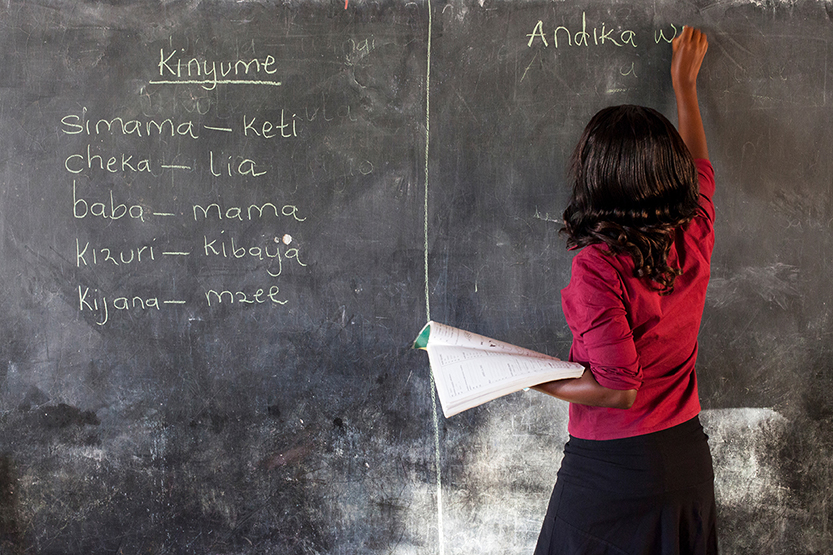 Kinyume
simama — keti
cheka — lia
baba — mama
kizuri — kibaya
Kijana — mzee
Andika w